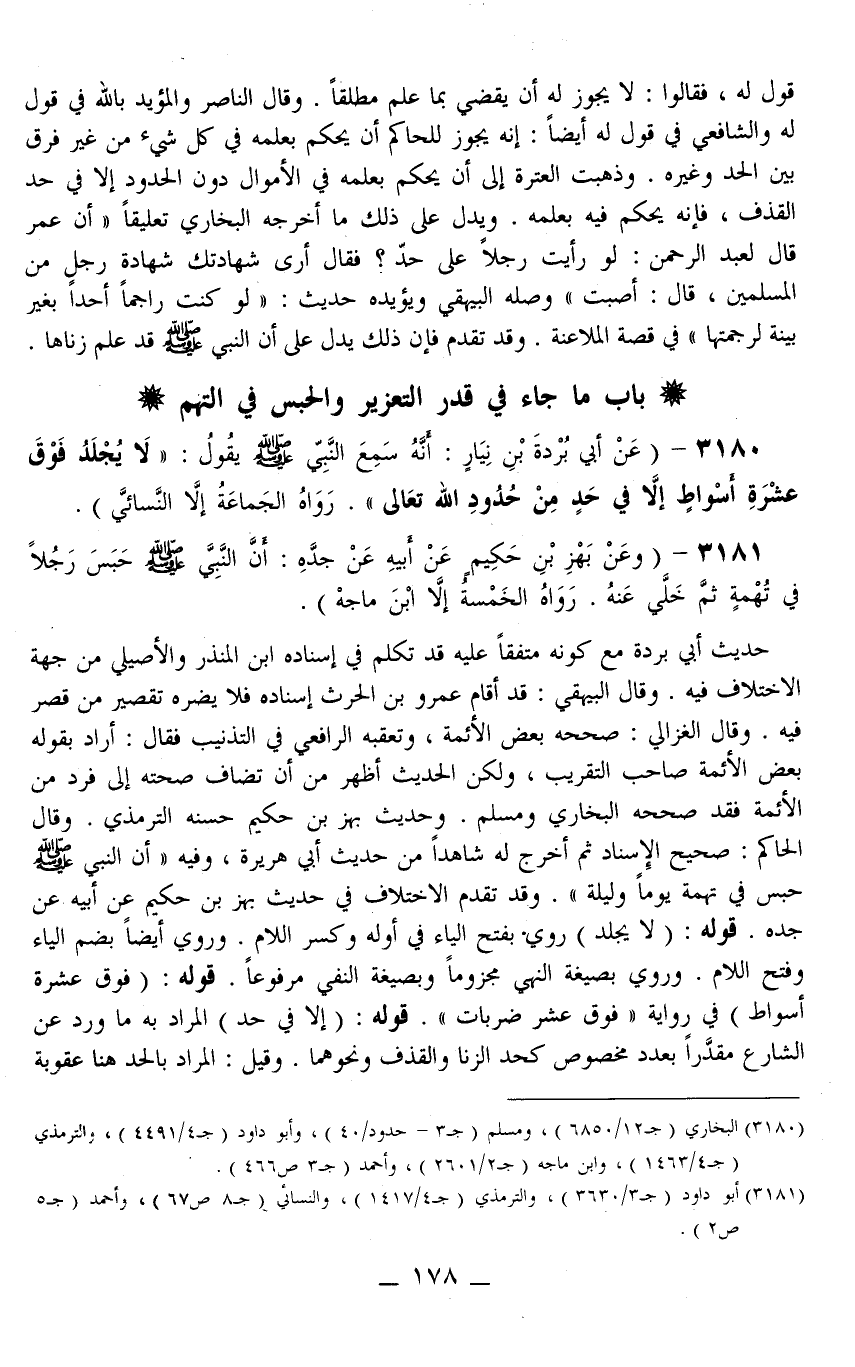 قول له ، فقالوا : لا يجوز له أن يقضي بما علم مطلقاً . وقال الناصر والمؤيد بالله في قول
له والشافعي في قول له أيضاً : إنه يجوز للحاكم أن يحكم بعلمه في كل شيء من غير فرق
بين الحد وغيره . وذهبت العترة إلى أن يحكم بعلمه في الأموال دون الحدود إلا في حد
القذف ، فإنه يحكم فيه بعلمه . ويدل على ذلك ما أخرجه البخاري تعليقاً « أن عمر
قال لعبد الرحمن : لو رأيت رجلاً على حدّ ؟ فقال أرى شهادتك شهادة رجل من
المسلمين ، قال : أصبت » وصله البيهقي ويؤيده حديث : « لو كنت راجماً أحداً بغير
بينة لرجمتها » في قصة الملاعنة . وقد تقدم فإن ذلك يدل على أن النبي ﷺ قد علم زناها .
✷ باب ما جاء في قدر التعزير والحبس في التهم ✷
٣١٨٠ – ( عَنْ أبي بُرْدةَ بْنِ نِيَارٍ : أَنَّهُ سَمِعَ النَّبِيّ ﷺ يقُولُ : « لَا يُجْلَدُ فَوْقَ
عشْرَةِ أَسْواطٍ إلَّا في حَدٍ مِنْ حُدُودِ الله تعَالى » . رَوَاهُ الجَماعَةُ إلَّا النَّسائيَّ ) .
٣١٨١ – ( وعَنْ بَهْزِ بْنِ حَكِيمٍ عَنْ أَبيهِ عَنْ جدَّهِ : أَنَّ النَّبِيَّ ﷺ حَبَسَ رَجُلاً
في تُهْمةٍ ثمَّ خَلَّي عَنهُ . رَوَاهُ الخَمْسةُ إلَّا ابْنَ ماجهْ ) .
حديث أبي بردة مع كونه متفقاً عليه قد تكلم في إسناده ابن المنذر والأصيلي من جهة
الاختلاف فيه . وقال البيهقي : قد أقام عمرو بن الحرث إسناده فلا يضره تقصير من قصر
فيه . وقال الغزالي : صححه بعض الأئمة ، وتعقبه الرافعي في التذنيب فقال : أراد بقوله
بعض الأئمة صاحب التقريب ، ولكن الحديث أظهر من أن تضاف صحته إلى فرد من
الأئمة فقد صححه البخاري ومسلم . وحديث بهز بن حكيم حسنه الترمذي . وقال
الحاكم : صحيح الإسناد ثم أخرج له شاهداً من حديث أبي هريرة ، وفيه « أن النبي ﷺ
حبس في تهمة يوماً وليلة » . وقد تقدم الاختلاف في حديث بهز بن حكيم عن أبيه عن
جده . قوله : ( لا يجلد ) روي بفتح الياء في أوله وكسر اللام . وروي أيضاً بضم الياء
وفتح اللام . وروي بصيغة النهي مجزوماً وبصيغة النفي مرفوعاً . قوله : ( فوق عشرة
أسواط ) في رواية « فوق عشر ضربات » . قوله : ( إلا في حد ) المراد به ما ورد عن
الشارع مقدَّراً بعدد مخصوص كحد الزنا والقذف ونحوهما . وقيل : المراد بالحد هنا عقوبة
(٣١٨٠) البخاري ( جـ٦٨٥٠/١٢ ) ، ومسلم ( جـ٣ – حدود/٤٠ ) ، وأبو داود ( جـ٤٤٩١/٤ ) ، والترمذي
( جـ١٤٦٣/٤ ) ، وابن ماجه ( جـ٢٦٠١/٢ ) ، وأحمد ( جـ٣ ص٤٦٦ ) .
(٣١٨١) أبو داود ( جـ٣٦٣٠/٣ ) ، والترمذي ( جـ١٤١٧/٤ ) ، والنسائي ( جـ٨ ص٦٧ ) ، وأحمد ( جـ٥
ص٢ ) .
— ١٧٨ —